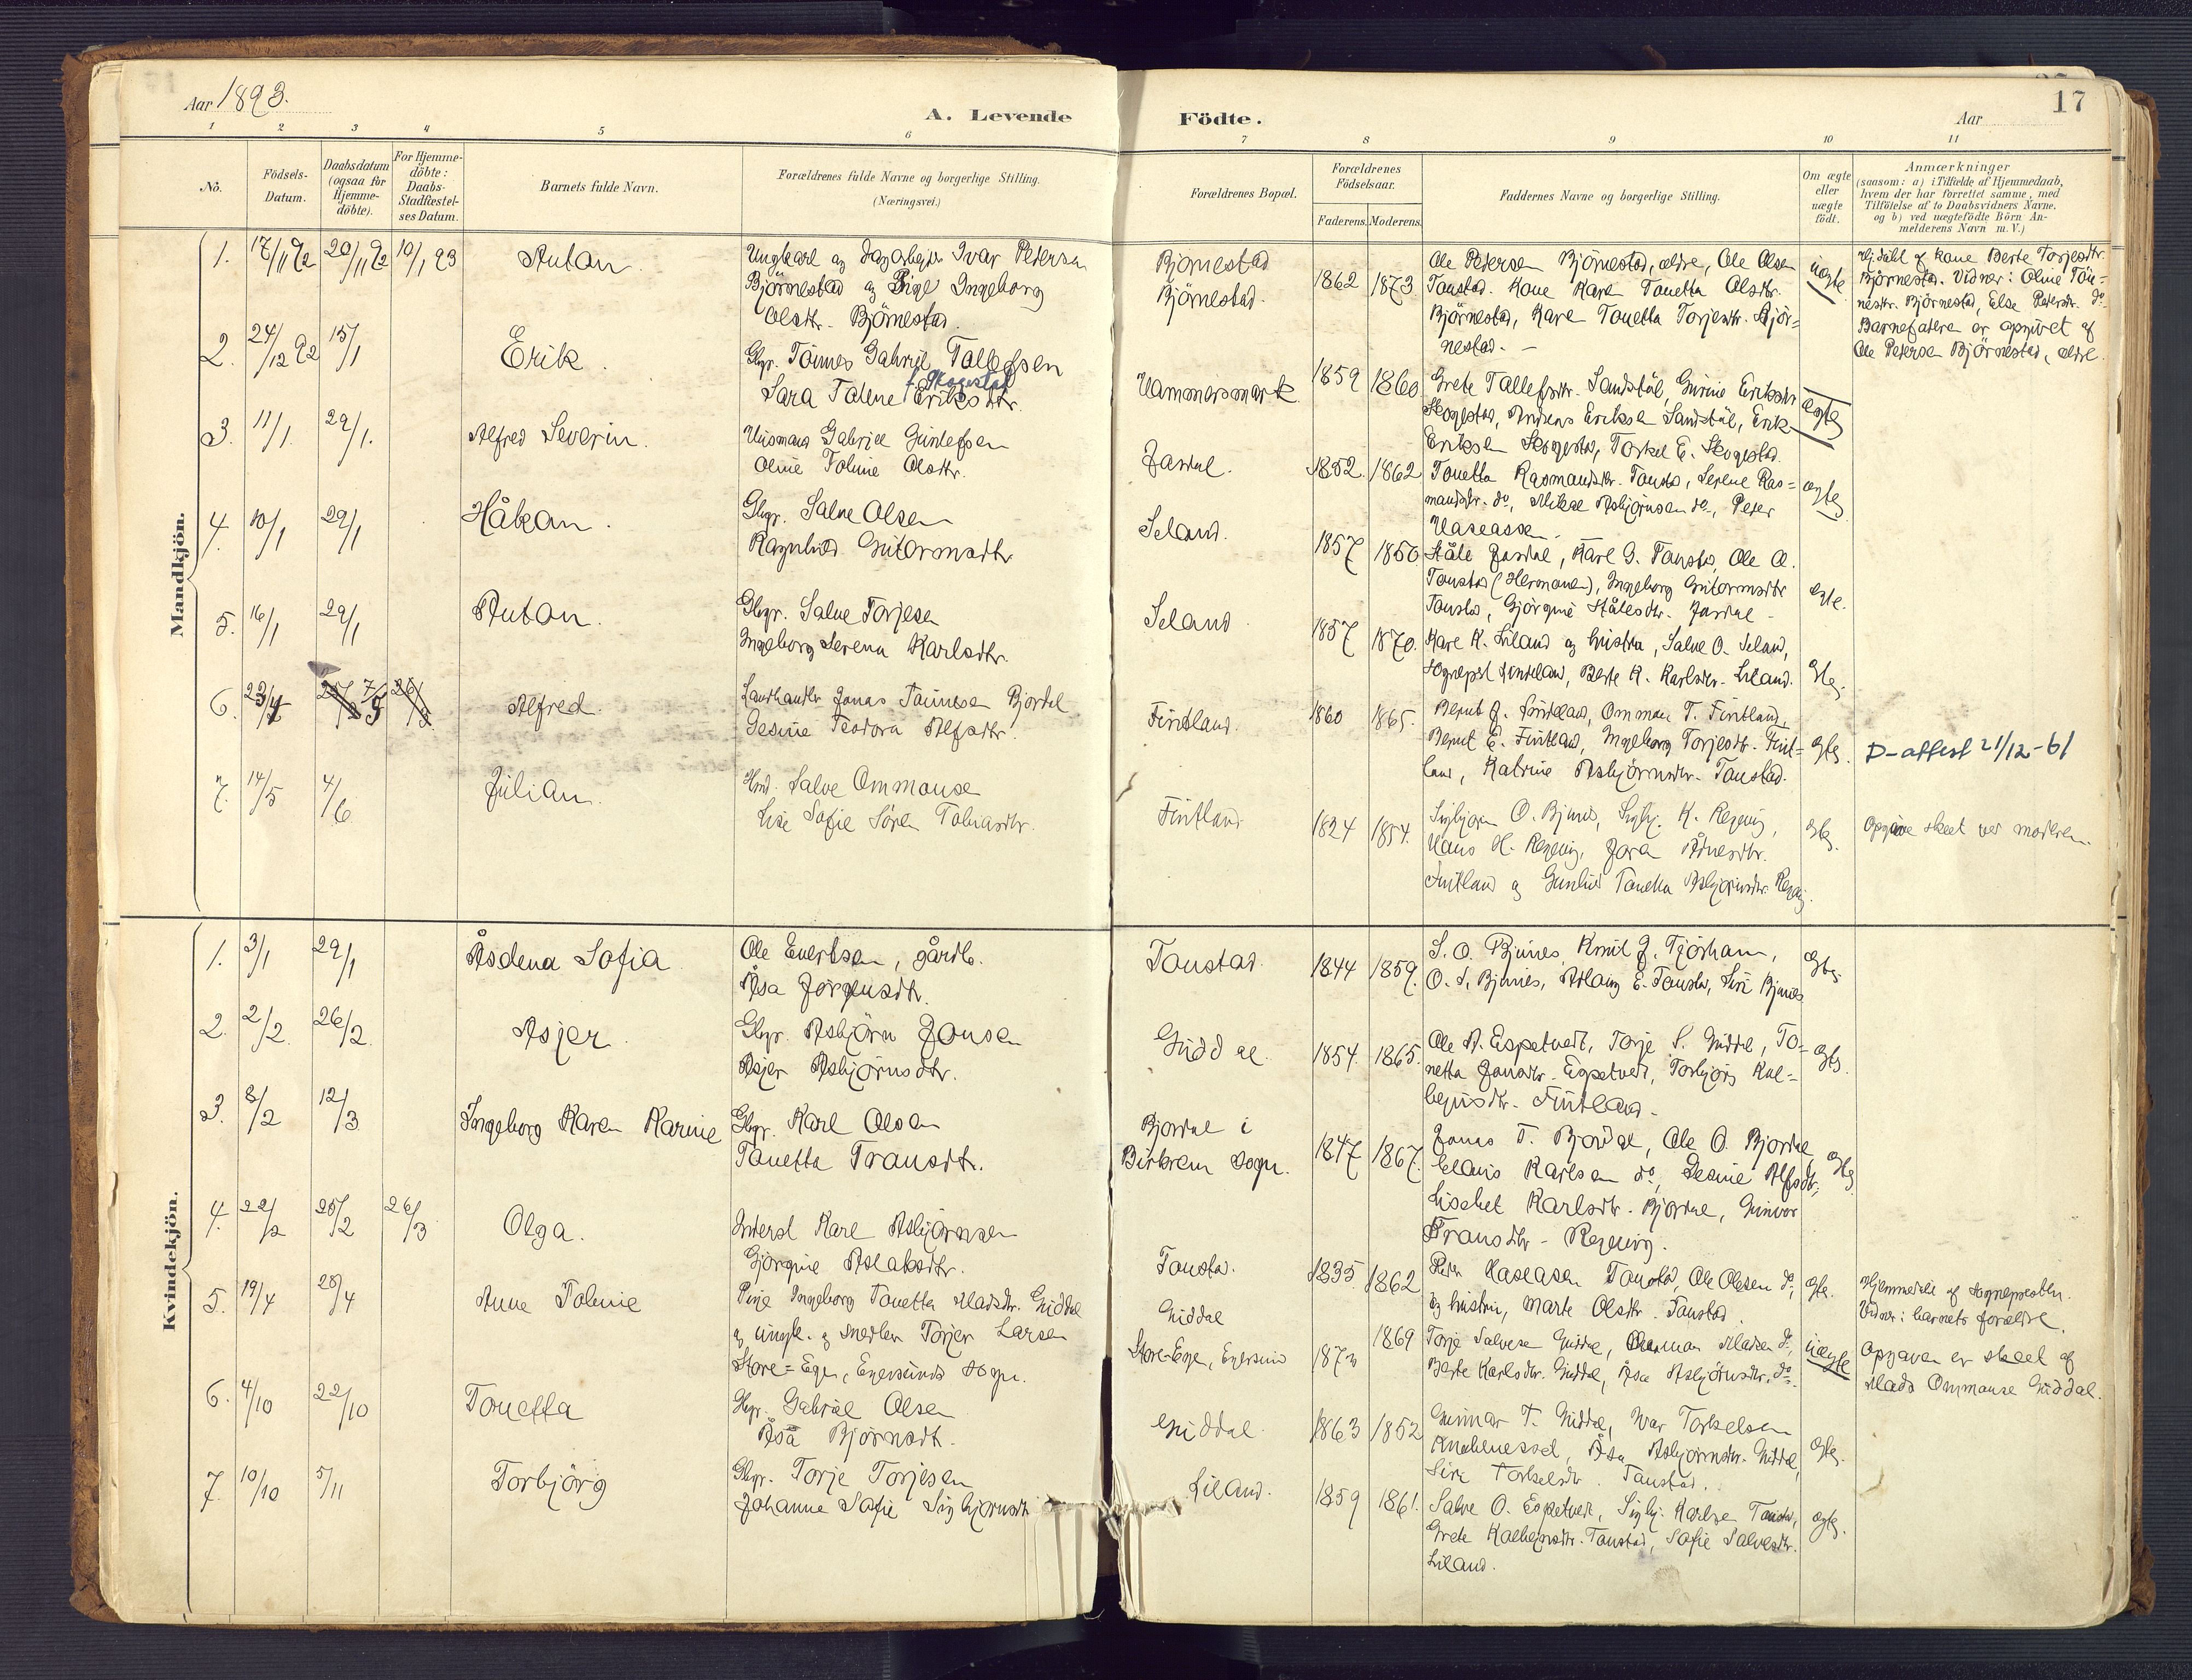 Aar 1893.
A. Levende
Födte.
Aar
17
1
2
3
4
5
6
7
8
9
10
11
No.
Födsels-Datum.
Daabsdatum (ogsaa for Hjemme-döbte).
For Hjemme-döbte: Daabs-Stadfæstel-ses Datum.
Barnets fulde Navn.
Forældrenes fulde Navne og borgerlige Stilling.
(Næringsvei.)
Forældrenes Bopæl.
Forældrenes Födselsaar.
Faderens. Moderens.
Faddernes Navne og borgerlige Stilling.
Om ægte eller uægte födt.
Anmærkninger
(saasom: a) i Tilfælde af Hjemmedaab,
hvem der har forrettet samme, med
Tilföielse af to Daabsvidners Navne.
og b) ved uægtefödte Börn An-
melderens Navn m. V.)
Mandkjön.
1. 17/11 92 20/11 92 10/1 93 Antan
Ungkarl og Ivar Petersen
Björnestad og Pige Ingeborg
Olsdtr. Björnestad.
Bjørnestad
Björnestad.
1862 1873.
Ole Petersen Björnestad, ældre, Ole Olsen
Tonstad. Kone Karen Tonetta Olsdtr.
Björnestad, Karen Tonetta Torjesdtr. Björ=
nestad. -
uægte
Hj.døbt af kone Berte Torjesdtr.
Björnestad. Vidner: Oline Tön=
nesdtr. Björnestad, Elsa Petersdtr. do.
Barnefaderen er opgivet af
Ole Petersen Björnestad, ældre.
2. 24/12 92 15/1 Erik.
Gbgr. Tönnes Gabriel Tollefsen
f. Skogestad
Sara Tolene Eriksdtr.
Hammersmark
1859 1860
Grete Tallefsdtr. Sandstöl, Gurine Eriksdtr
Skogestad, Andreas Eriksen Sandstöl, Erik
Eriksen Skogestad, Torkel E. Skogestad.
ægte
3. 11/1. 29/1. Alfred Severin.
Husmand Gabriel Gunlefsen
Oline Toline Olsdtr.
Josdal.
1852. 1862
Tonetta Rasmusdtr. Tonstad, Serene Ras=
musdtr. do., Mikal Asbjörnsen do., Peter
Haaeassen.
ægte
4. 10/1 29/1 Håkon.
Gbgr. Salve Olsen
Ragnhild Gutormsdtr
Seland.
1857 1850
Ståle Josdal, Karl G. Tonstad, Ole O.
Tonstad (Hermanen), Ingeborg Gutormsdtr
Tonstad, Gjörgine Stålesdtr. Josdal -
egte.
5. 16/1 29/1 Anton.
Gbgr. Salve Torjesen
Ingeborg Serena Karlsdtr.
Seland
1857 1870.
Kare K. Liland og hustru, Salve O. Seland,
Sognepst Lindeland, Berte K. Karlsdtr. Liland.
6. 23/4 7/5 Alfred.
Landhandler Jonas Tönnesen Bjordal
Gesine Teodora Alfsdtr.
Fintland.
1860 1865.
Bernt J. Lindeland, Ommon T. Fintland,
Bernt E. Fintland, Ingeborg Torjesdtr. Fint=
land, Katrine Asbjörnsdtr. Tonstad.
D-attest 21/12-61
7. 14/5 4/6 Julian.
Salve Ommonse
Lise Sofie Sören Tobiasdtr.
Fintland
1824 1854.
Sigbjörn O. Bjunes, Sigbj. K. Regevig,
Hans H. Regevig, Jora Ånesdtr.
Fintland og Gunhild Tonetta Asbjörnsdtr. Regevig.
Opgave skeet ved moderen.
Kvindekjön.
1. 3/1 29/1 Åsdena Sofia
Ole Evertsen, gårdb.
Åsa Jörgensdtr.
Tonstad.
1844 1859.
S. O. Bjunes, Knut J. Tjörhom,
O. S. Bjunes, Aslaug E. Tonstad, Siri Bjunes
2. 2/2. 26/2. Asjer.
Gbgr. Asbjörn Jonsen
Asjer Asbjörnsdtr.
Guddal.
1854. 1865.
Ole A. Espetvedt, Torje S. Guddal, To=
netta Jonsdtr. Espetvedt, Torbjörg Kol=
bejnsdtr. Fintland -
3. 8/2 12/3 Ingeborg Karen Karine
Gbgr. Karl Olsen
Tonetta Transdtr.
Bjordal i
Birkrem sogn.
1847 1867.
Jonas T. Bjordal, Ole O. Bjordal,
Claus Karlsen do., Gesine Alfsdtr.
Lisebet Karlsdtr. Bjordal, Gunvor
Transdtr - Regevig.
4. 22/2 25/2 26/3 Olga.
Inderst Karl Asbjörnsen
Gjörgine Aslaksdtr.
Tonstad.
1835 1862
Peder Haaeasen Tonstad, Ole Olsen do.,
og hustru, Marte Olsdtr. Tonstad.
Hjemmedöbt af sognepresten.
Vidner: barnets forældre.
5. 19/4 28/4 Anne Toline
Pige Ingeborg Tonetta Madsdtr. Guddal
og ungk. og snedker Torjer Larsen
Store=Ege, Egersunds sogn.
Guddal
Store-Ege, Egersund
1872 1869
Torje Salvesen Guddal, Ommon Madsen do.,
Berte Karlsdtr. Guddal, Åsa Asbjörnsdtr. do.
uægte
Opgaven er skeet af
Mads Ommonse Guddal.
6. 4/10 22/10 Tonetta
Gbgr. Gabriel Olsen
Åsa Björnsdt.
Guddal.
1863 1852
Gunnar T. Guddal, Ivar Torkelsen
Knabenessel, Åsa Asbjörnsdtr. Guddal,
Siri Torkelsdtr. Tonstad.
7. 10/10 5/11 Torbjörg
Gbgr. Torje Torjesen
Johanne Sofie Sigbjørnsdtr
Liland.
1859 1861.
Salve O. Espetvedt, Sigbj. Karlsen Tonstad,
Grete Kolbejnsdtr. Tonstad, Sofie Salvesdtr.
Liland.